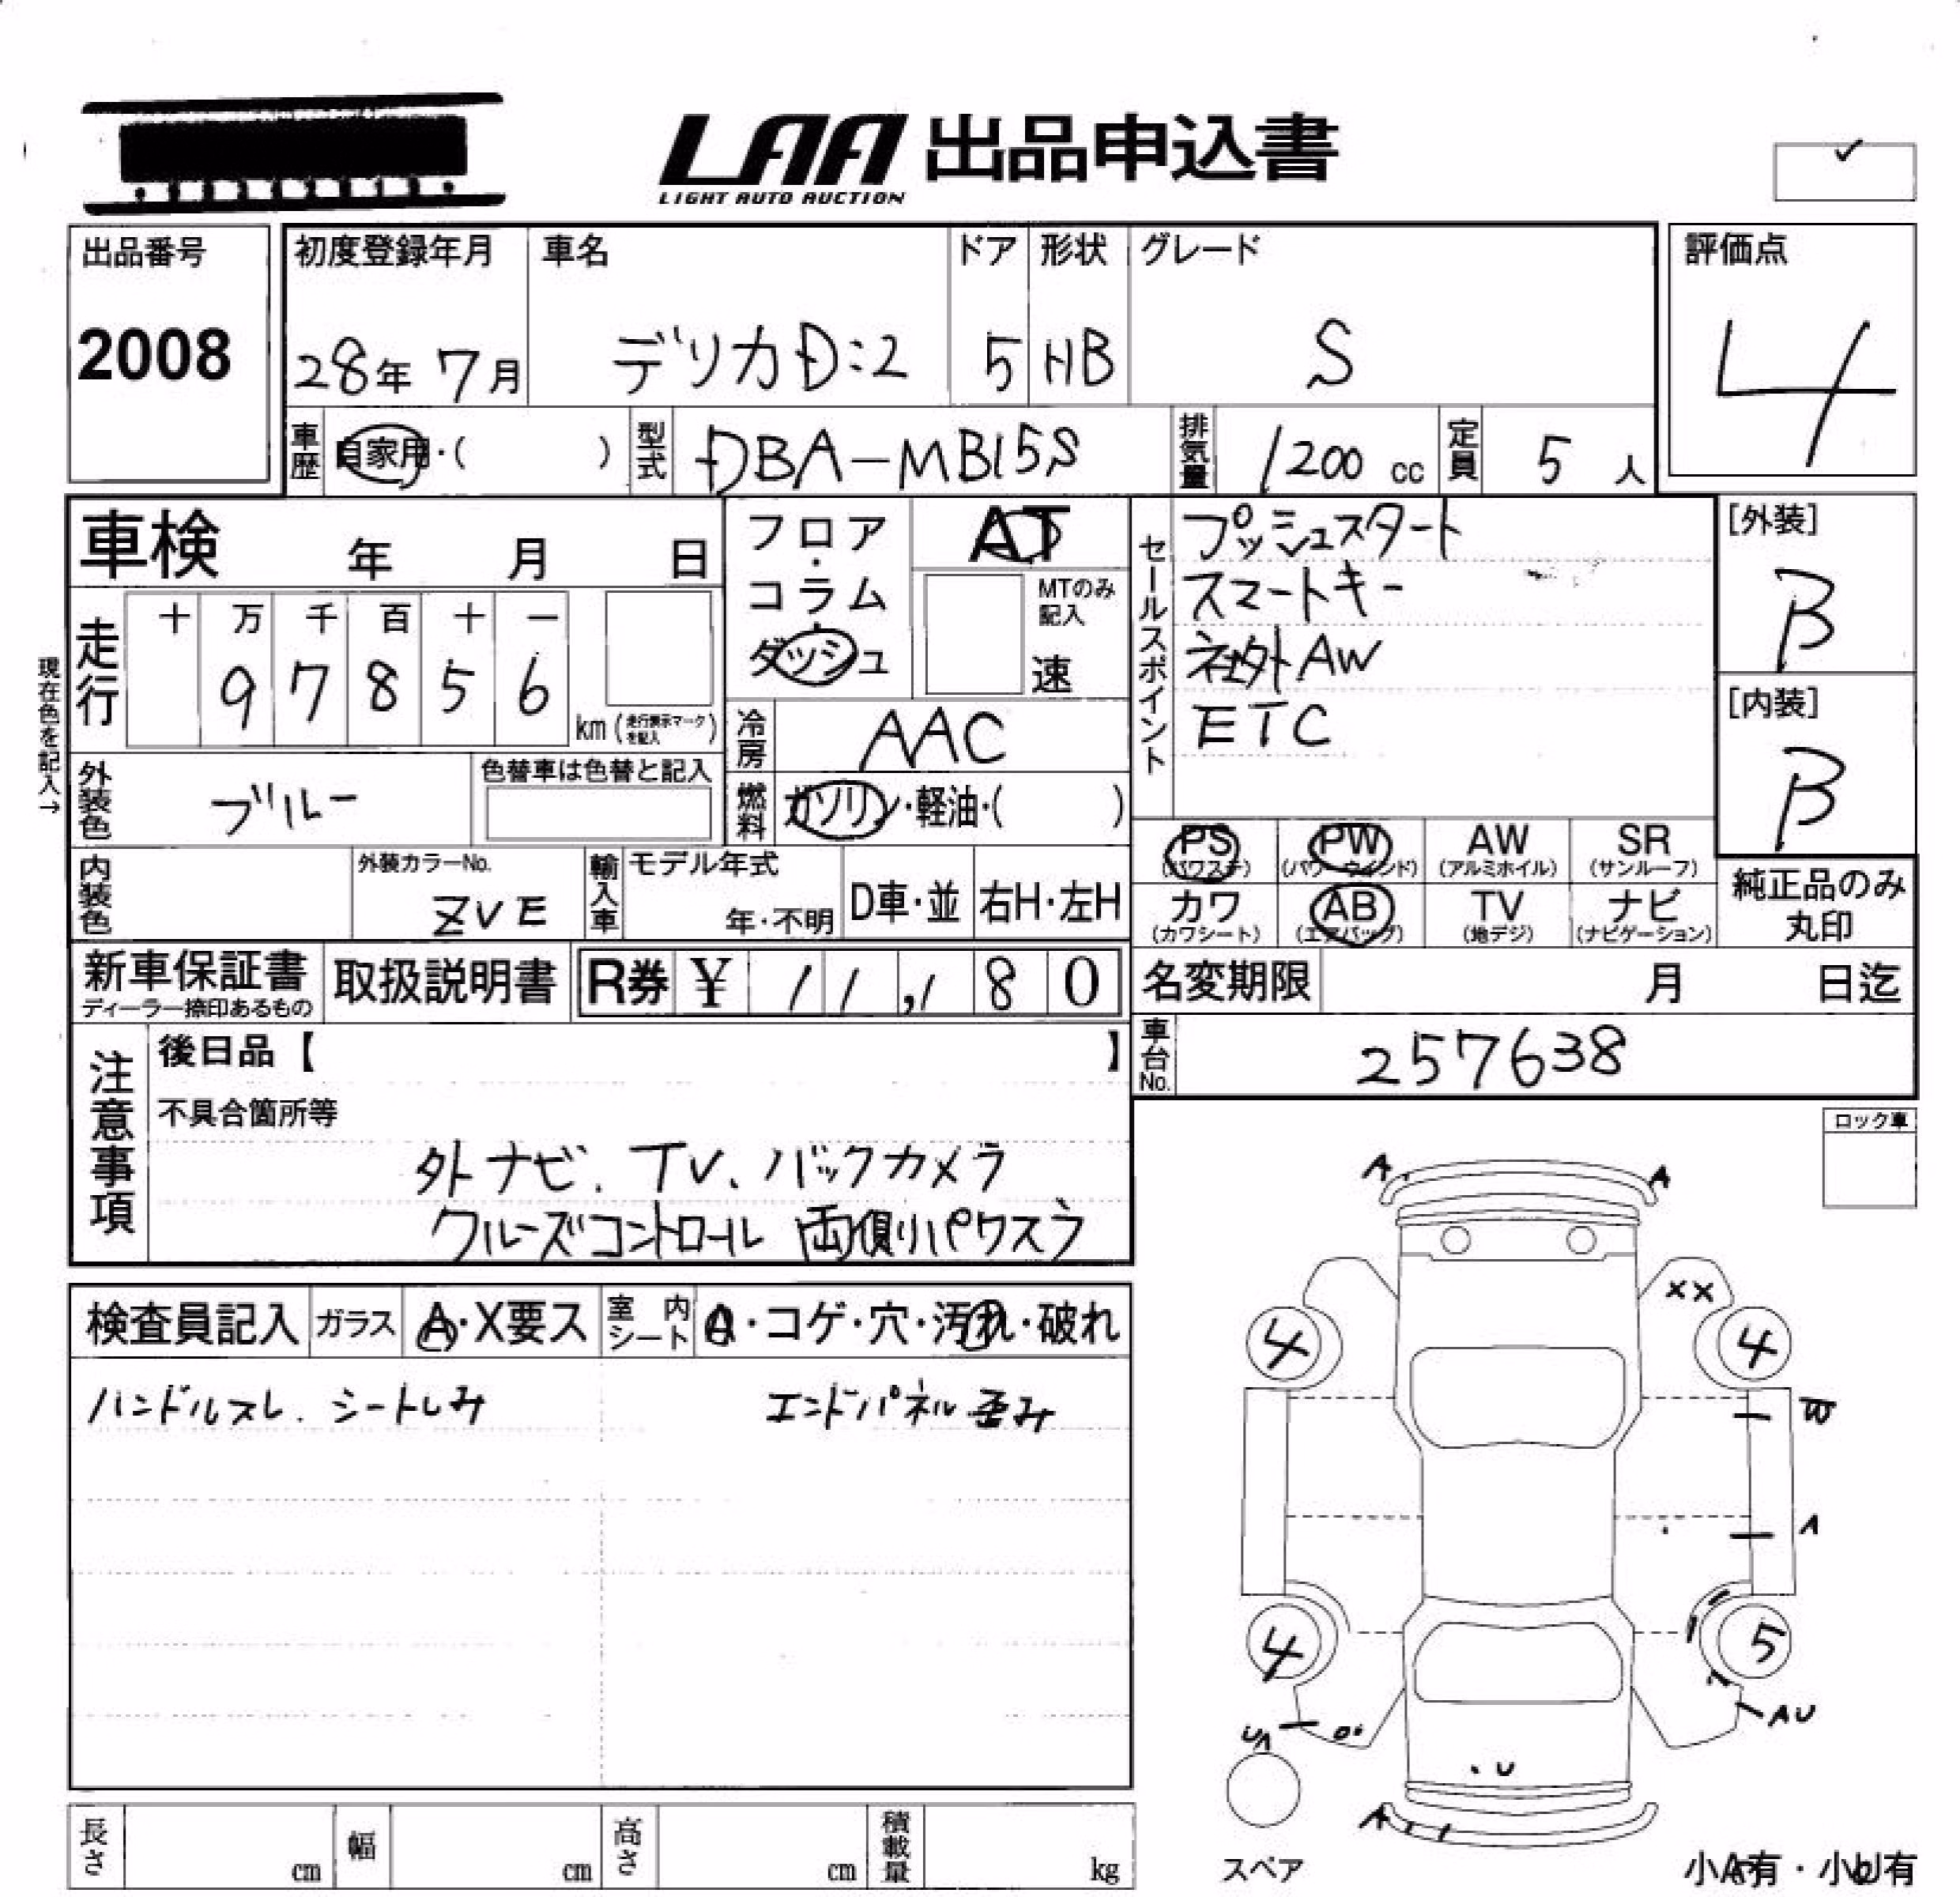 LAA 出品申込書
LIGHT AUTO AUCTION
✓
出品番号
2008
初度登録年月 車名 ドア 形状 グレード
28年 7月 デリカD:2 5 HB S
評価点
4
車歴 自家用・( ) 型式 DBA-MB15S 排気量 1200 cc 定員 5 人
車検 年 月 日
フロア・コラム・ダッシュ
AT
MTのみ記入
速
現在色を記入→
走行 十 万 千 百 十 一
9 7 8 5 6
km (走行表示マークを記入)
冷房 AAC
燃料 ガソリン・軽油・( )
セールスポイント
プッシュスタート
スマートキー
社外AW
ETC
[外装]
B
[内装]
B
外装色 ブルー
色替車は色替と記入
内装色
外装カラーNo.
ZVE
輸入車 モデル年式
年・不明
D車・並 右H・左H
PS PW AW SR
(パワステ) (パワーウインド) (アルミホイル) (サンルーフ)
カワ AB TV ナビ
(カワシート) (エアバッグ) (地デジ) (ナビゲーション)
純正品のみ
丸印
新車保証書
ディーラー捺印あるもの
取扱説明書
R券 ¥ 1 1 ,1 8 0
名変期限 月 日迄
車台No. 257638
注意事項
後日品【 】
不具合箇所等
外ナビ、TV、バックカメラ
クルーズコントロール 両側パワスラ
ロック車
検査員記入 ガラス A・X要ス 室内シート A・コゲ・穴・汚れ・破れ
ハンドルスレ、シートしみ エンドパネル歪み
A A
XX
4 4
W
A
4 5
AU
UA
U
A
スペア
小A有・小U有
長さ cm 幅 cm 高さ cm 積載量 kg